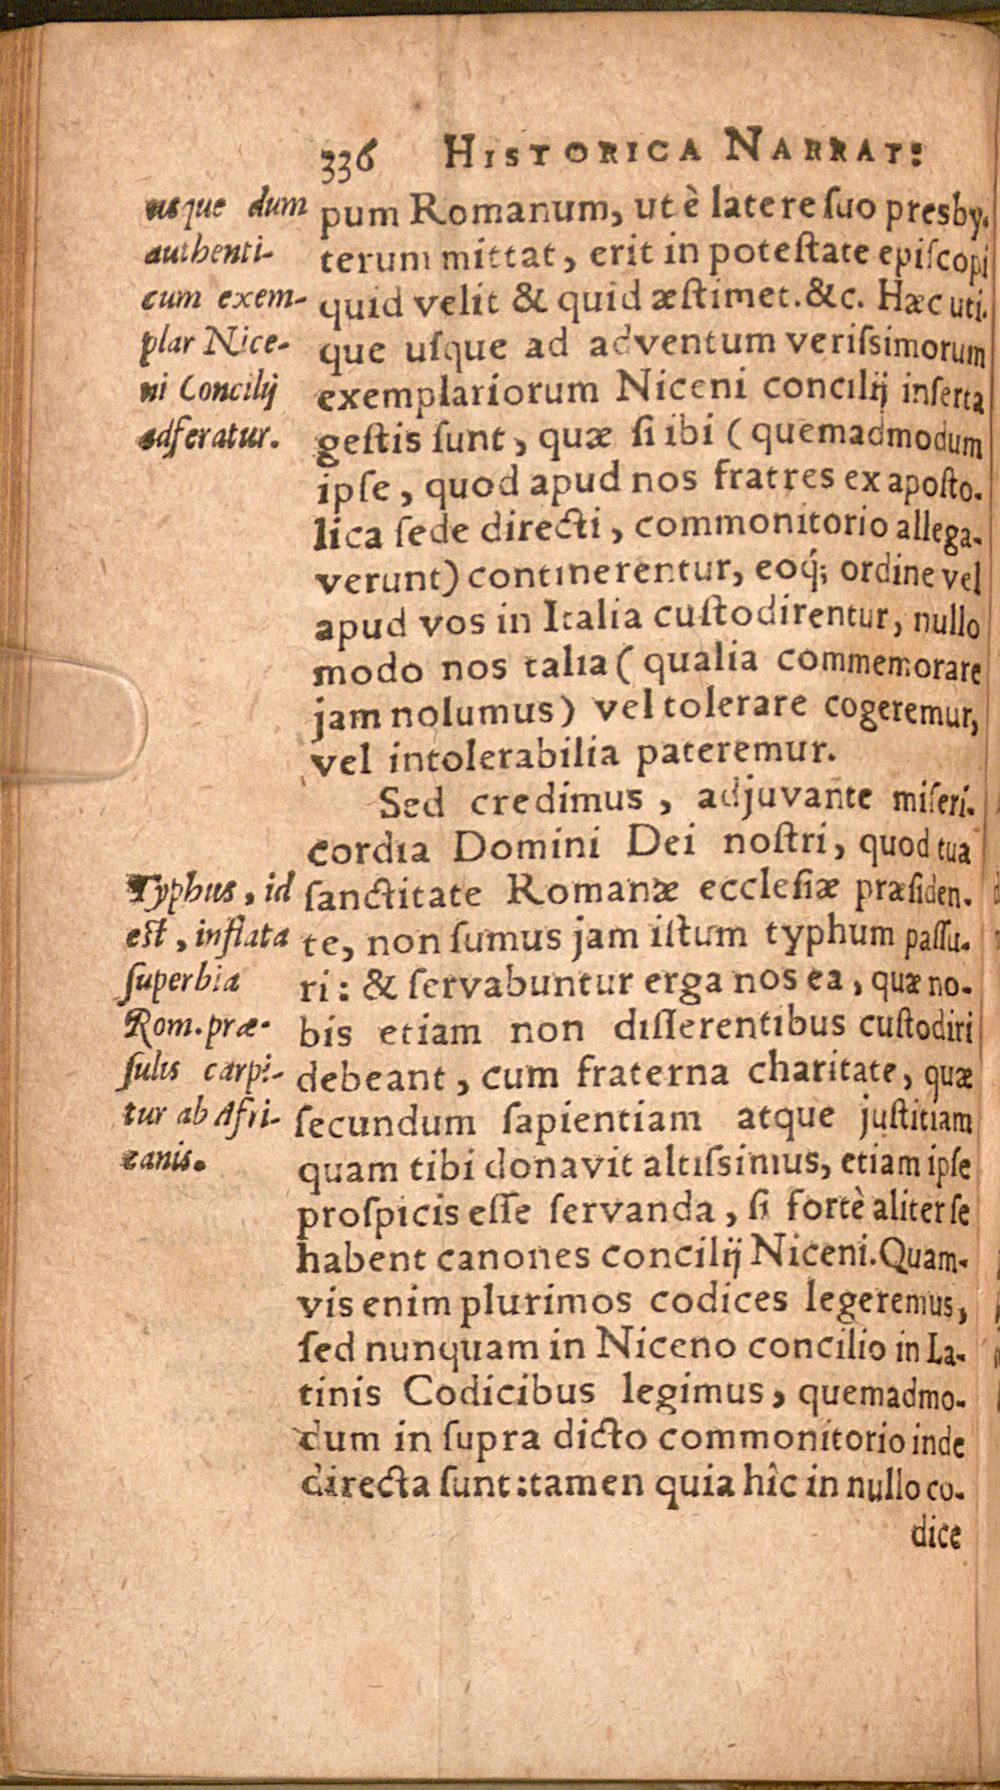 336 HISTORICA NARRAT:
usque dum
authenti-
cum exem-
plar Nice-
ni Concilij
adferatur.
pum Romanum, ut è latere ſuo presby-
terum mittat, erit in poteſtate epiſcopi
quid velit & quid æſtimet. &c. Hæc uti-
que uſque ad adventum veriſsimorum
exemplariorum Niceni concilij inſerta
geſtis ſunt, quæ ſi ibi (quemadmodum
ipſe, quod apud nos fratres ex apoſto-
lica ſede directi, commonitorio allega-
verunt) continerentur, eoq́; ordine vel
apud vos in Italia cuſtodirentur, nullo
modo nos talia (qualia commemorare
jam nolumus) vel tolerare cogeremur,
vel intolerabilia pateremur.
Sed credimus, adjuvante miſeri-
cordia Domini Dei noſtri, quod tua
Typhus, id
eſt, inflata
ſuperbia
Rom. præ-
ſulis carpi-
tur ab Afri-
canis.
ſanctitate Romanæ eccleſiæ præſiden-
te, non ſumus jam iſtum typhum paſſu-
ri: & ſervabuntur erga nos ea, quæ no-
bis etiam non diſſerentibus cuſtodiri
debeant, cum fraterna charitate, quæ
ſecundum ſapientiam atque juſtitiam
quam tibi donavit altiſsimus, etiam ipſe
proſpicis eſſe ſervanda, ſi fortè aliter ſe
habent canones concilij Niceni. Quam-
vis enim plurimos codices legeremus,
ſed nunquam in Niceno concilio in La-
tinis Codicibus legimus, quemadmo-
dum in ſupra dicto commonitorio inde
directa ſunt: tamen quia hîc in nullo co-
dice